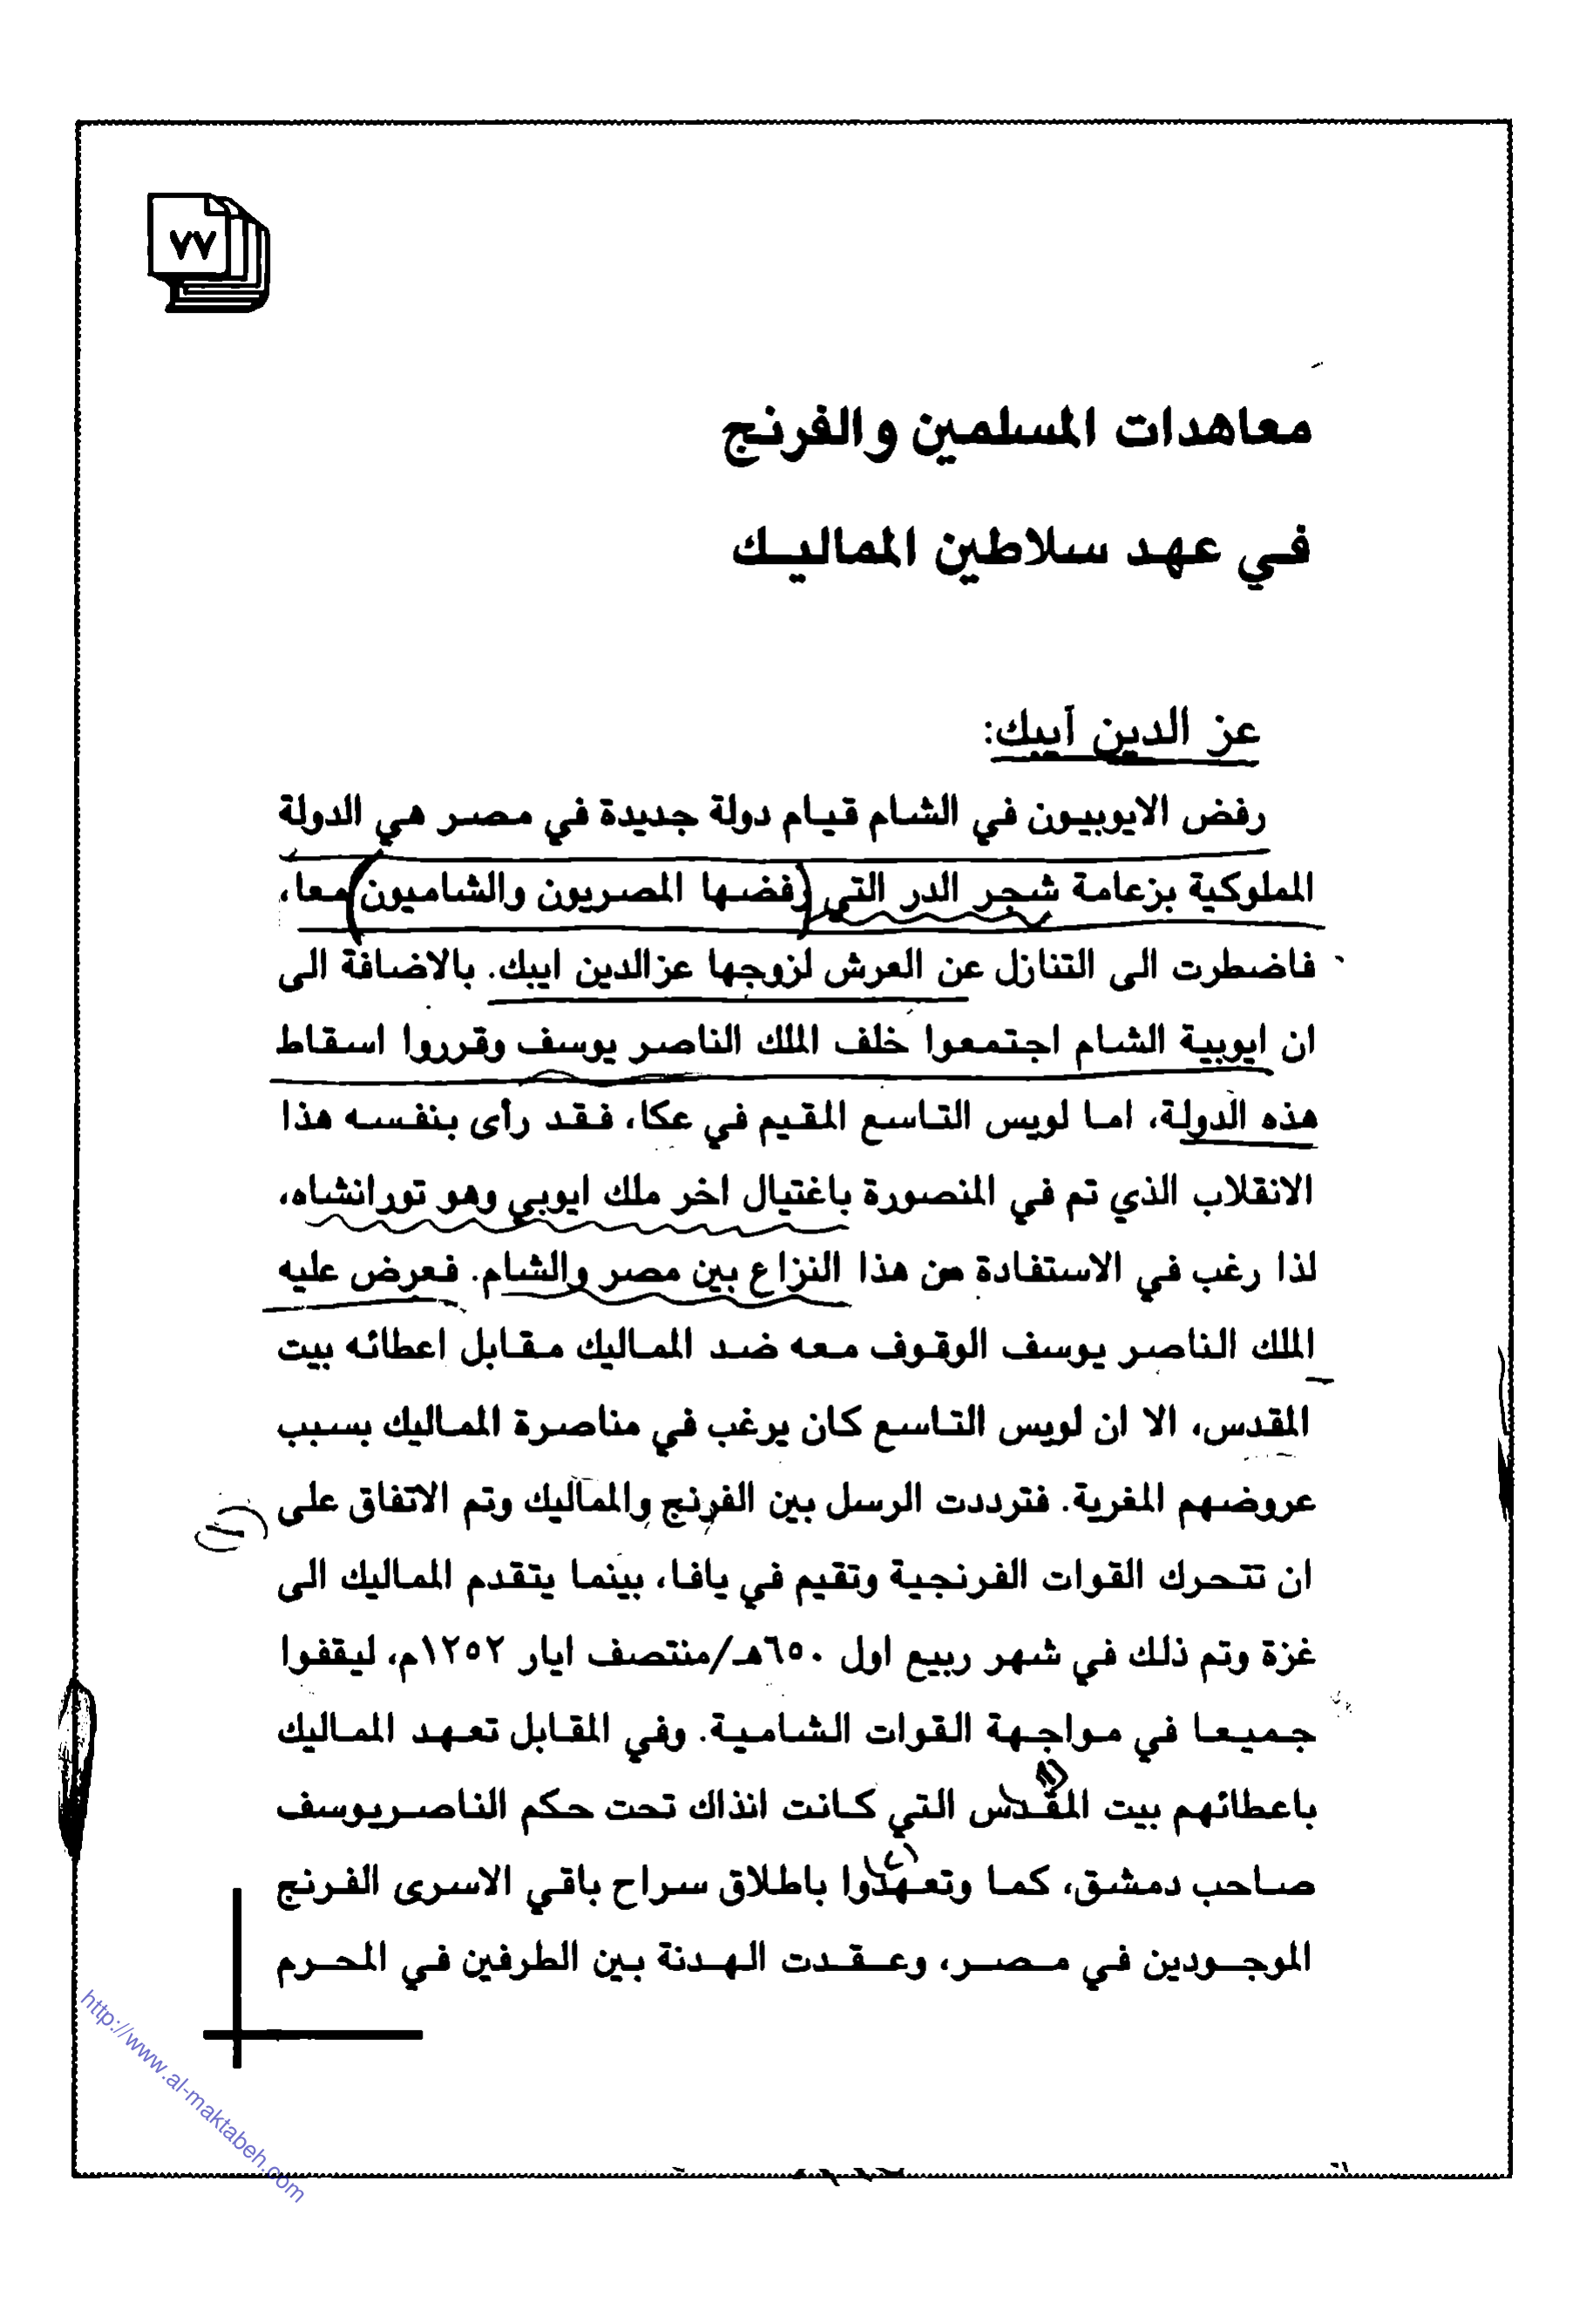 ٧٧
معاهدات المسلمين والفرنج
في عهد سلاطين المماليك
عز الدين آيبك:
رفض الايوبيون في الشام قيام دولة جديدة في مصر هي الدولة
المملوكية بزعامة شجر الدر التي رفضها المصريون والشاميون معا،
فاضطرت الى التنازل عن العرش لزوجها عزالدين ايبك. بالاضافة الى
ان ايوبية الشام اجتمعوا خلف الملك الناصر يوسف وقرروا اسقاط
هذه الدولة، اما لويس التاسع المقيم في عكا، فقد رأى بنفسه هذا
الانقلاب الذي تم في المنصورة باغتيال اخر ملك ايوبي وهو تورانشاه،
لذا رغب في الاستفادة من هذا النزاع بين مصر والشام. فعرض عليه
الملك الناصر يوسف الوقوف معه ضد المماليك مقابل اعطائه بيت
المقدس، الا ان لويس التاسع كان يرغب في مناصرة المماليك بسبب
عروضهم المغرية. فترددت الرسل بين الفرنج والمماليك وتم الاتفاق على
ان تتحرك القوات الفرنجية وتقيم في يافا، بينما يتقدم المماليك الى
غزة وتم ذلك في شهر ربيع اول ٦٥٠هـ/منتصف ايار ١٢٥٢م، ليقفوا
جميعا في مواجهة القوات الشامية. وفي المقابل تعهد المماليك
باعطائهم بيت المقدس التي كانت انذاك تحت حكم الناصريوسف
صاحب دمشق، كما وتعهدوا باطلاق سراح باقي الاسرى الفرنج
الموجودين في مصر، وعقدت الهدنة بين الطرفين في المحرم
http://www.al-maktabeh.com